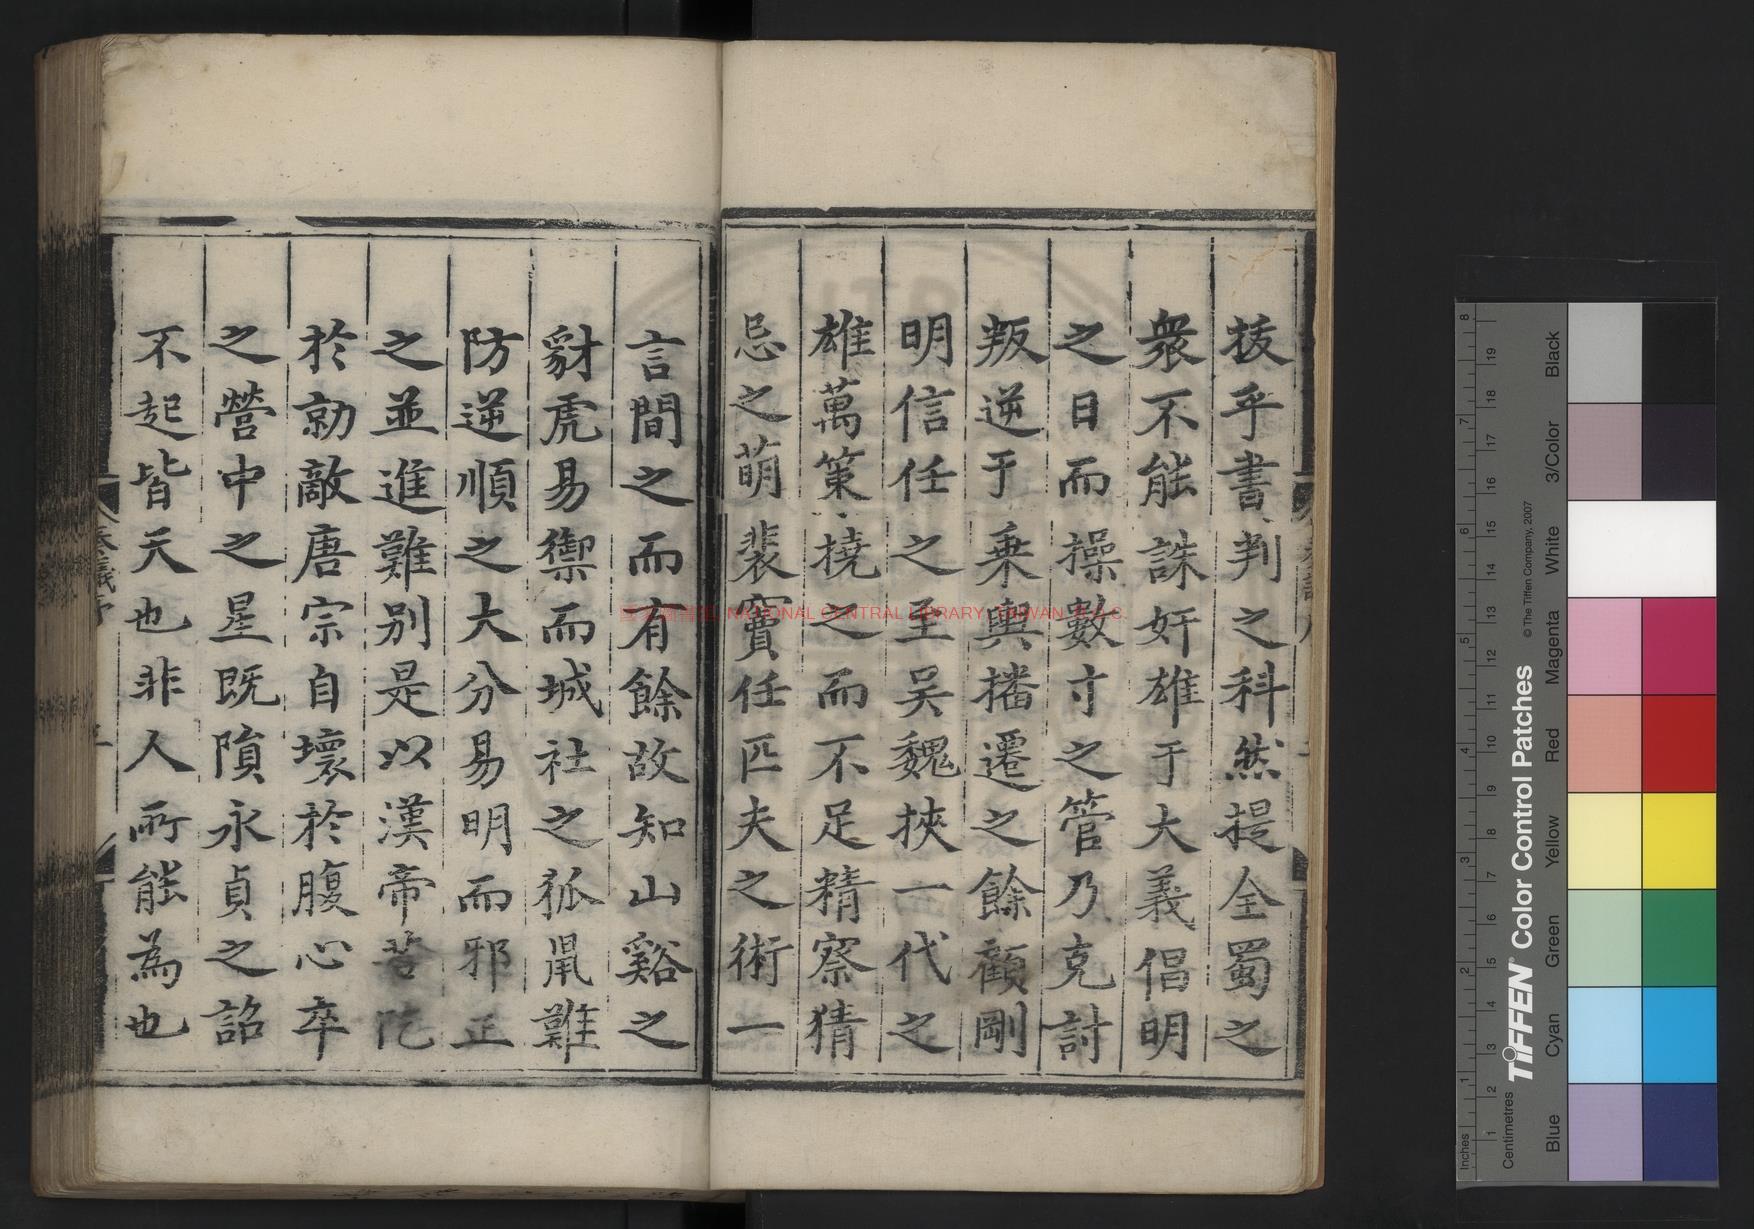 拔乎書判之科然提全蜀之
衆不能誅奸雄于大義倡明
之日而操數寸之管乃克討
叛逆于乗輿播遷之餘顧剛
明信任之至吴魏挾一代之
雄萬策撓之而不足精察猜
忌之萌裴竇任匹夫之術一
言間之而有餘故知山谿之
豺虎易禦而城社之狐鼠難
防逆順之大分易明而邪正
之並進難别是以漢帝
於勍敵唐宗自壞於腹心卒
之營中之星既隕永貞之詔
不起皆天也非人所能為也
奏議序
NATIONAL CENTRAL LIBRARY, TAIWAN
TIFFEN® Color Control Patches
© The Tiffen Company, 2007
Inches
Centimetres
Blue
Cyan
Green
Yellow
Red
Magenta
White
3/Color
Black
1 2 3 4 5 6 7 8
1 2 3 4 5 6 7 8 9 10 11 12 13 14 15 16 17 18 19